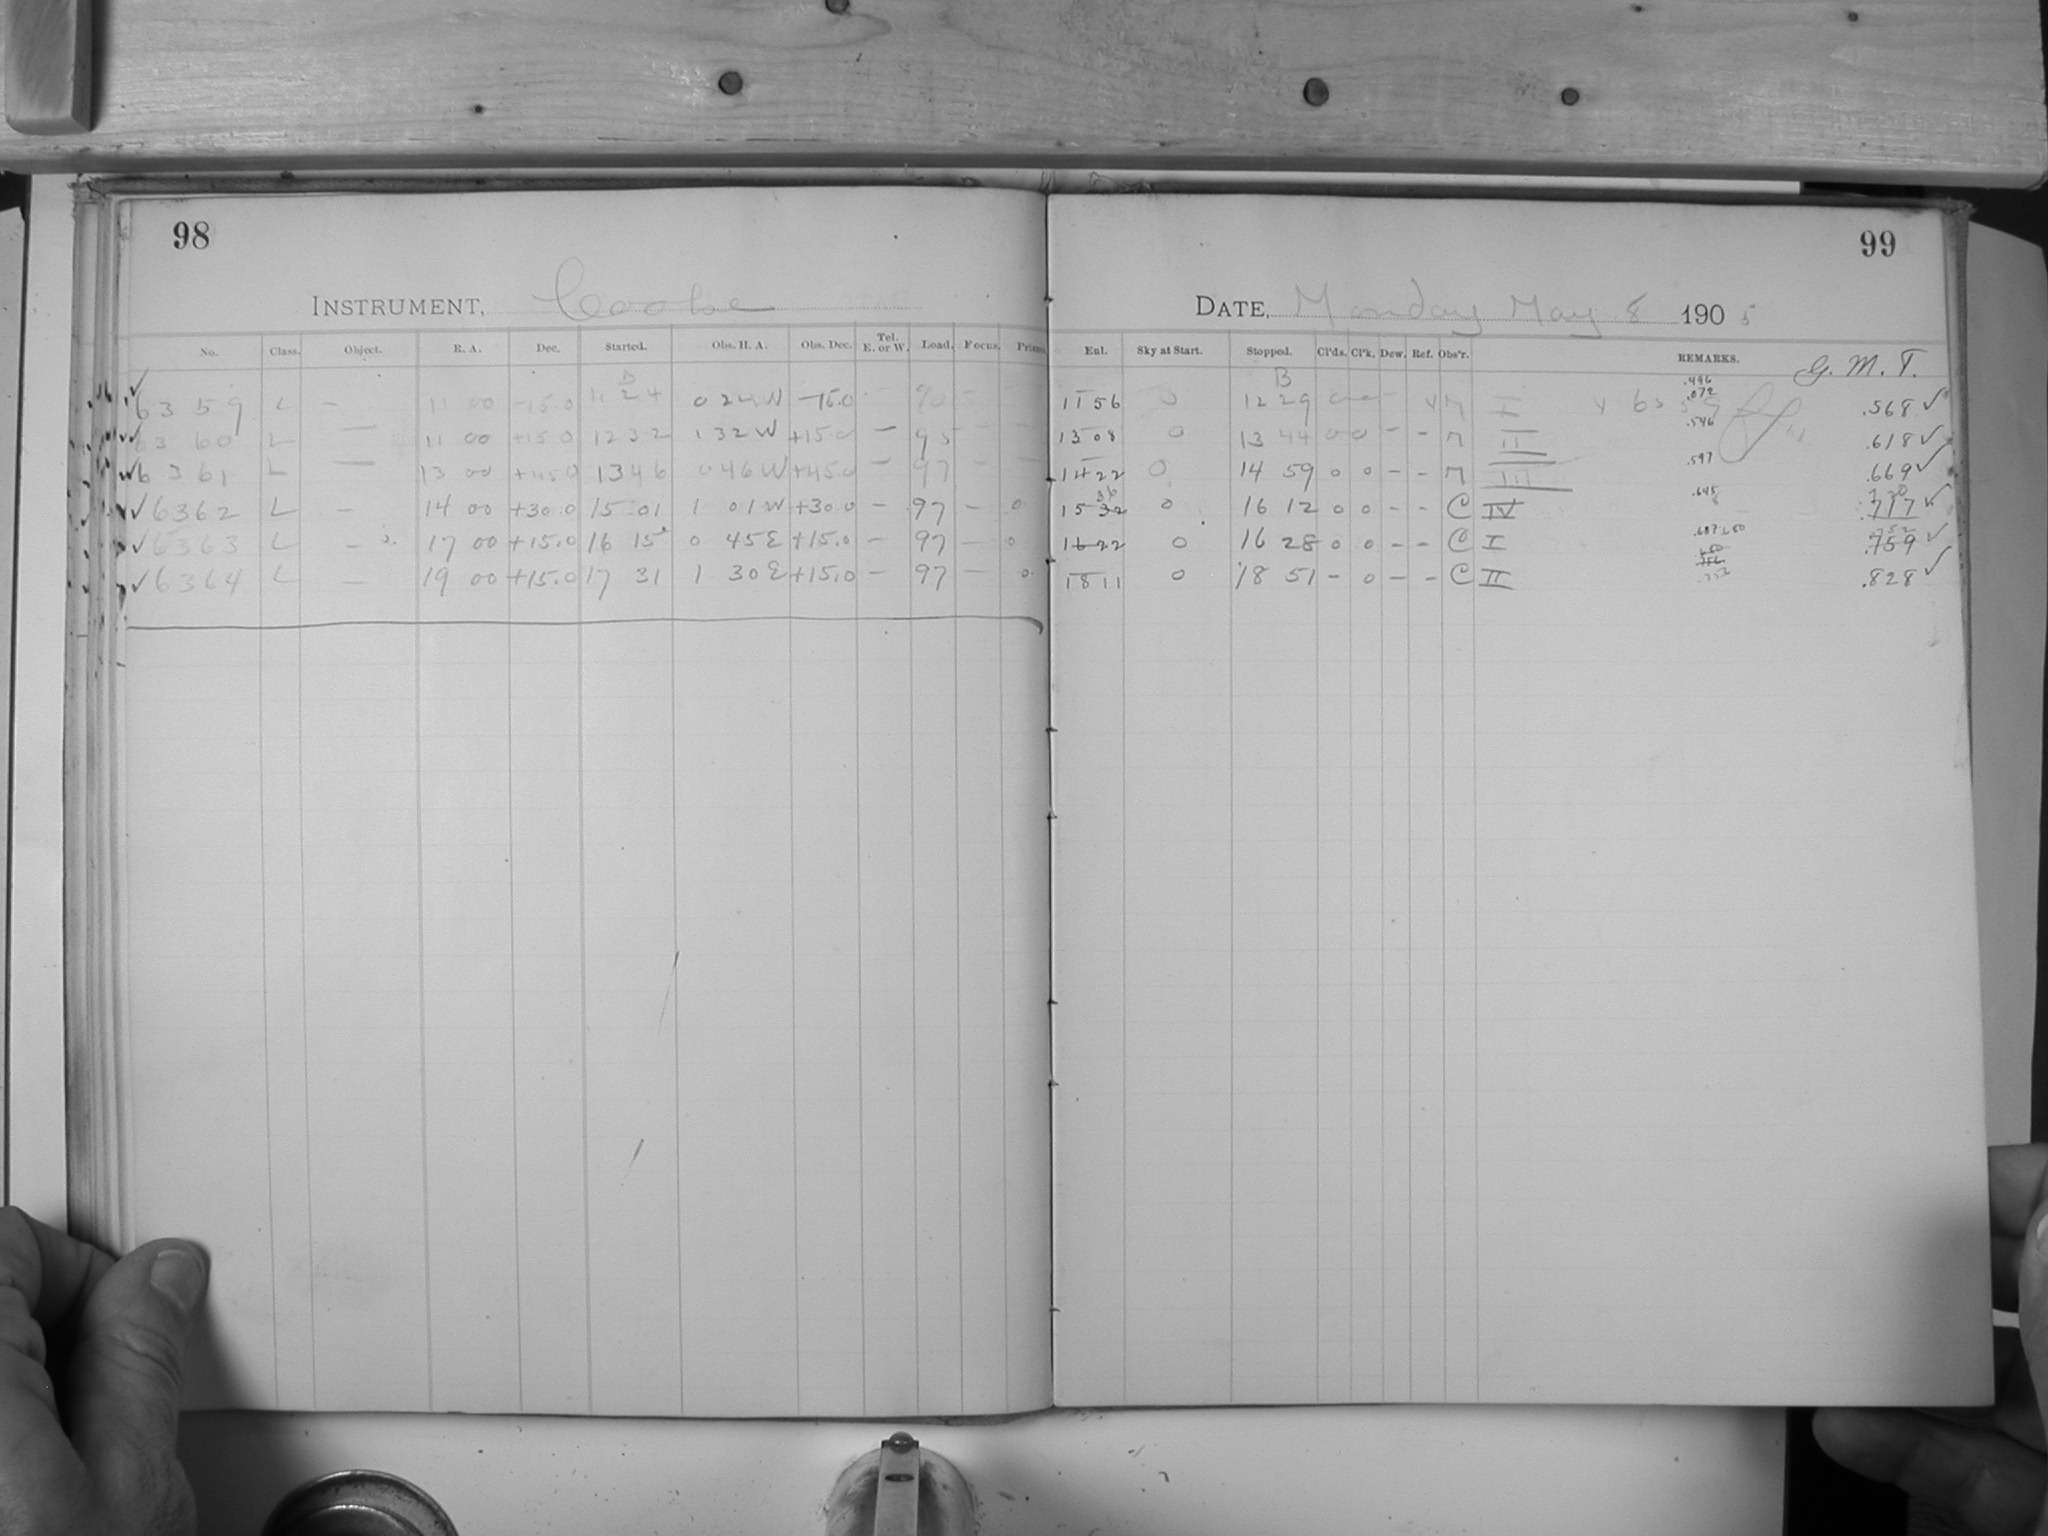 98
INSTRUMENT, Cooke
No. Class. Object. R. A. Dec. Started. Obs. H. A. Obs. Dec. Tel. E. or W. Load. Focus.
B
✓6359 L – 11 00 -15.0 11 24 0 24 W -15.0 – –
✓6360 L — 11 00 +15.0 1232 1 32 W +15.0 – 95 – –
✓6361 L — 13 00 +45.0 1346 0 46 W +45.0 – 97 – –
✓6362 L – 14 00 +30.0 15 01 1 01 W +30.0 – 97 – 0
✓6363 L – 17 00 +15.0 16 15 0 45 E +15.0 – 97 – 0
✓6364 L – 19 00 +15.0 17 31 1 30 E +15.0 – 97 – 0
99
DATE, Monday May 8 1905
Enl. Sky at Start. Stopped. Cl'ds. Cl'k. Dew. Ref. Obs'r. REMARKS. G. M. T.
B
.496
11 56 0 12 29 0 0 – I .072 .568 ✓
.546
13 08 0 13 44 0 0 – – II .618 ✓
.597
14 22 0 14 59 0 0 – – III .669 ✓
36 .645 20
15 32 0 16 12 0 0 – – C IV 8 .717 ✓
.687 752
16 22 0 16 28 0 0 – – C I .759 ✓
18 11 0 18 51 – 0 – – C II .828 ✓